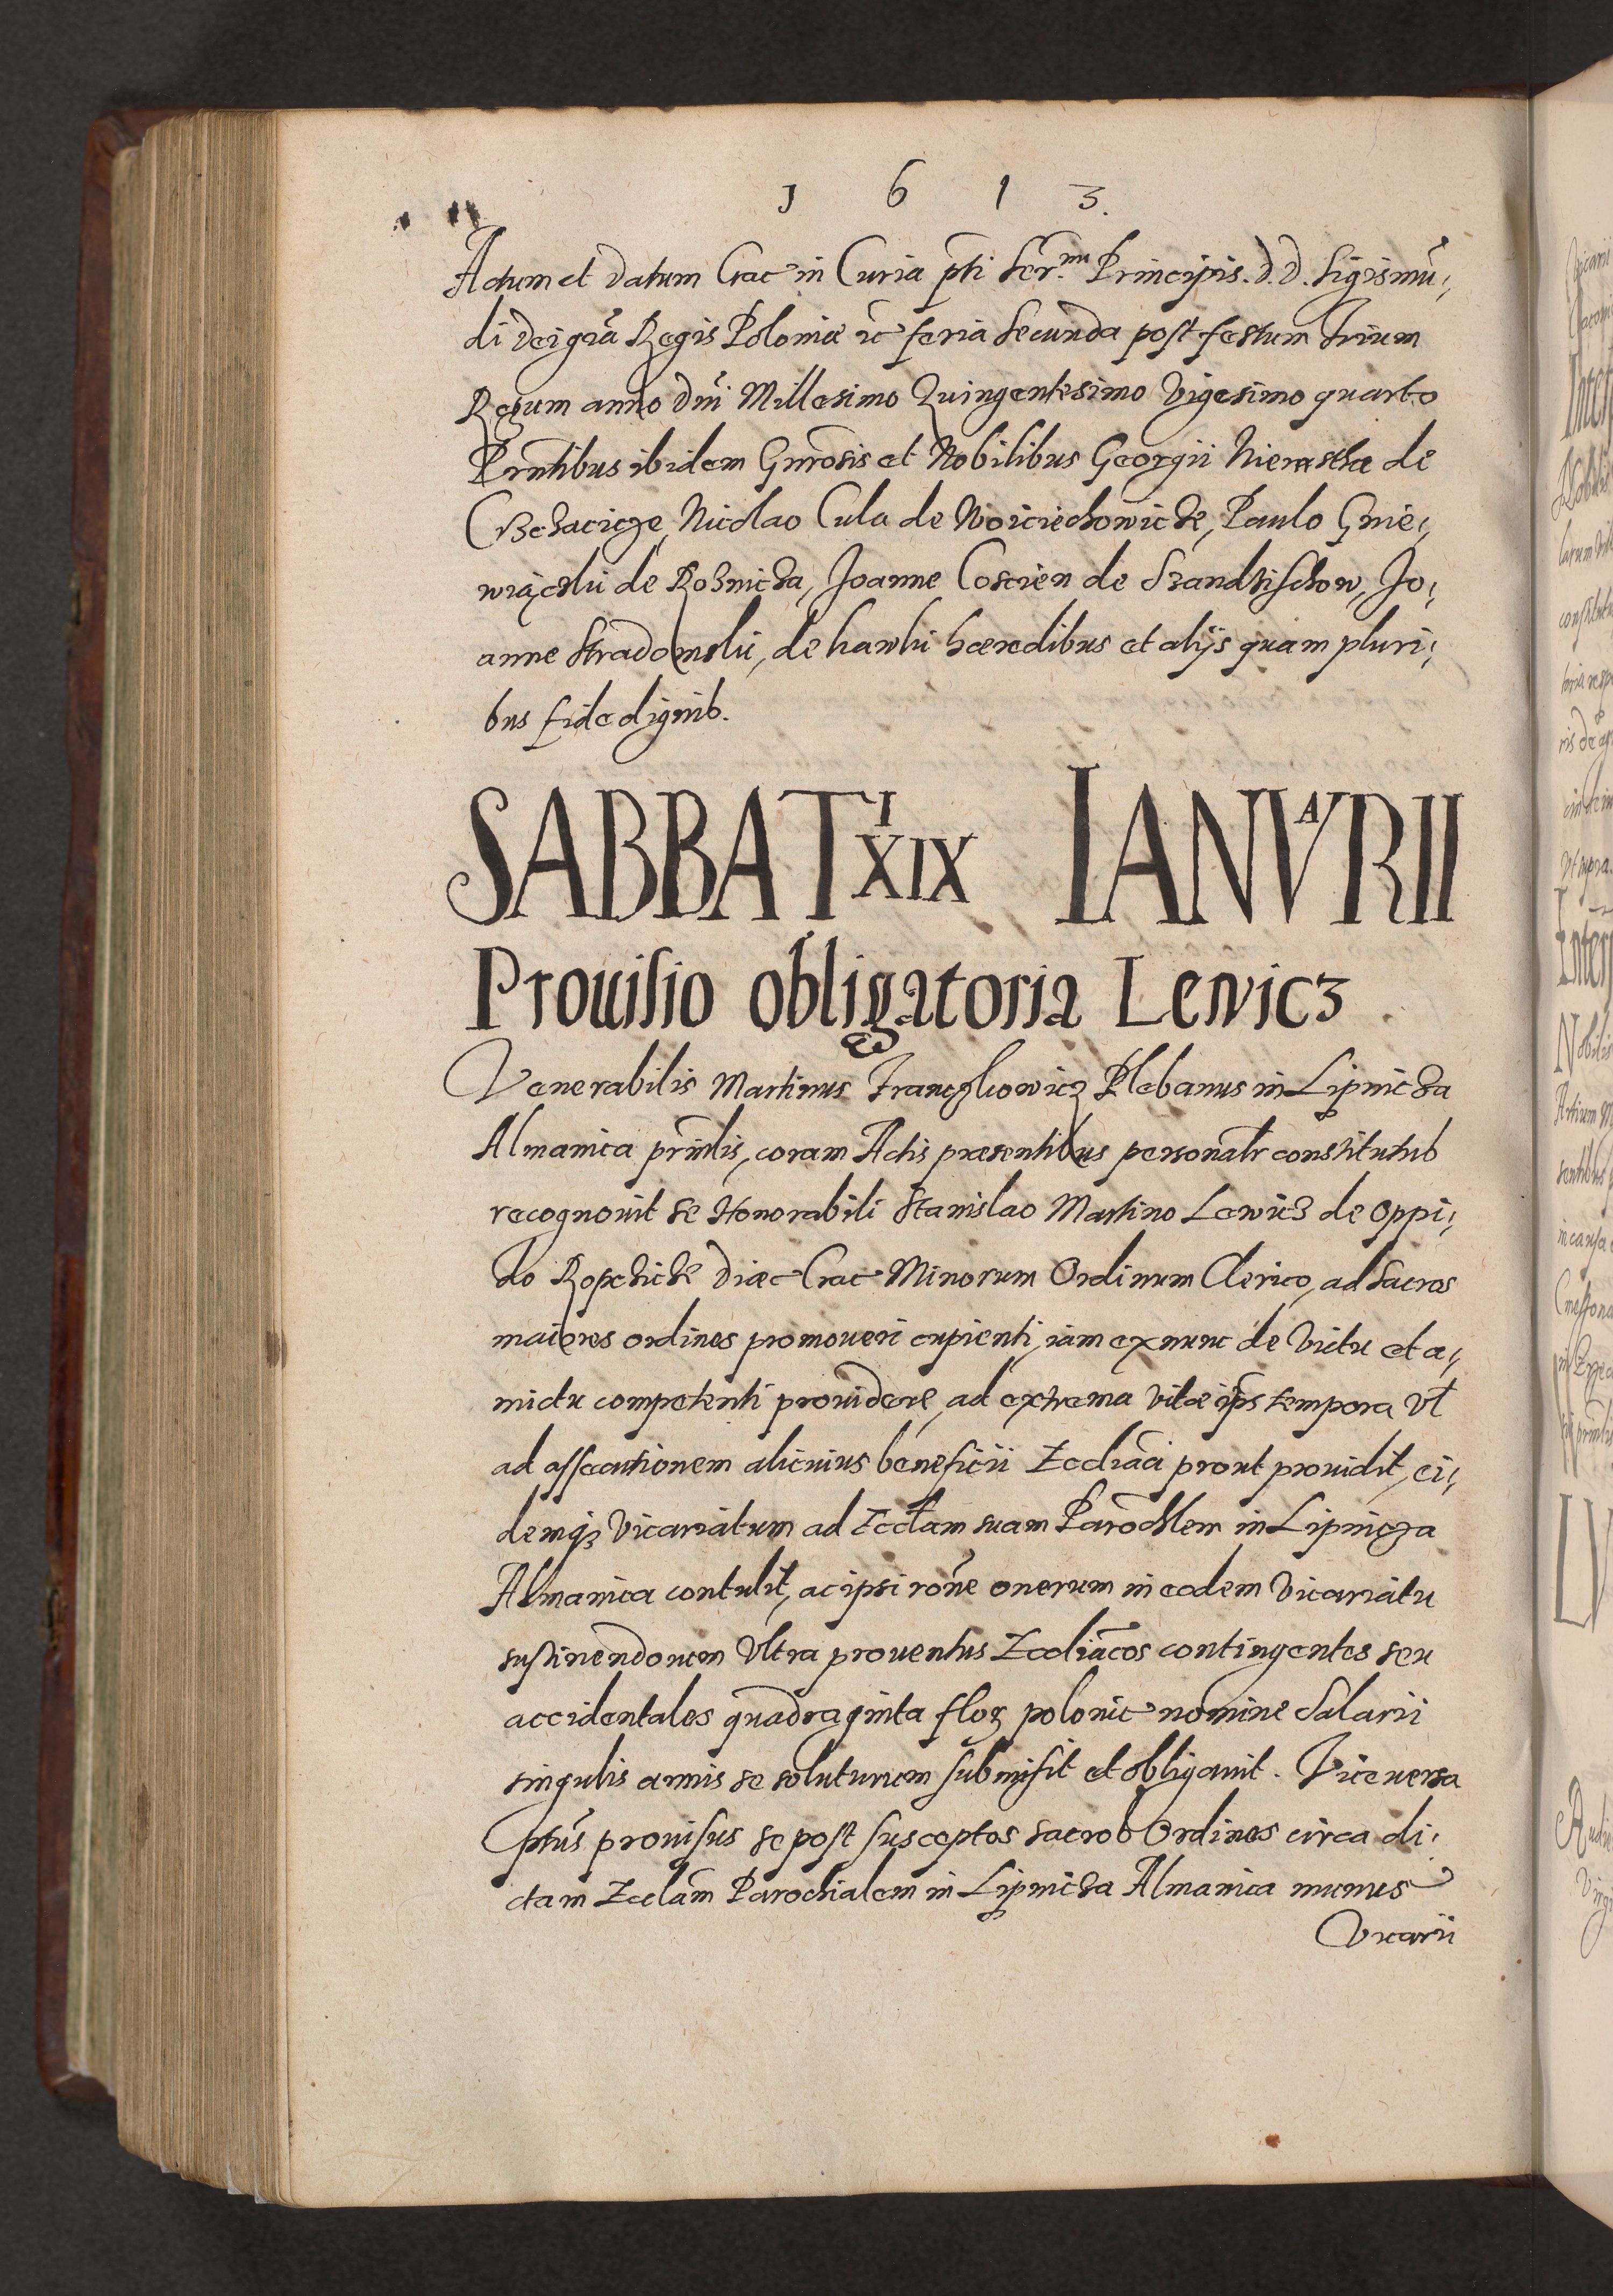 1 6 1 3.
Actum et datum Crac in Curia pti Ser.mi Principis. D. D. Sigismu¸
di Dei gra Regis Poloniæ ic feria secunda post festum Trium
Regum anno dni Millesimo Quingentesimo Vigesimo quarto
Prntibus ibidem Gnrosis et Nobilibus Georgii de
Nicolao Cula de Woiciechowicze, Paulo Gnie¸
de Joanne Coscien de Jo¸
anne Stradomski, de hæredibus et alijs quam pluri¸
bus fide dignib.
SABBATI XIX IANVARII
Prouisio obligatoria Lewicz
Venerabilis Martinus Franczkowicz Plebanus in Lipnicza
Almanica prinlis, coram Actis præsentibus personalr constitutus
recognouit se Honorabili Stanislao Martino Lewicz de oppi¸
do Ropczicze Diæc Crac Minorum Ordinum Clerico, ad sacros
maiores ordines promoueri cupienti, iam ex nunc de victu et a¸
mictu competenti prouidere, ad extrema vitæ ips tempora vl
ad assecutionem alicuius beneficii Eccliaci prout prouidit, ei¸
demq3 Vicariatum ad Ecclam suam Parochlem in Lipnicza
Almanica contulit, ac ipsi rone onerum in eodem Vicariatu
sustinendorum Vltra prouentus Eccliacos contingentes seu
accidentales quadraginta flor polonic nomine Salarii
singulis annis se soluturum submisit et obligauit. Vice versa
ptus prouisus se post susceptos sacros Ordines circa di¸
ctam Ecclam Parochialem in Lipnicza Almanica munus
Vicarii